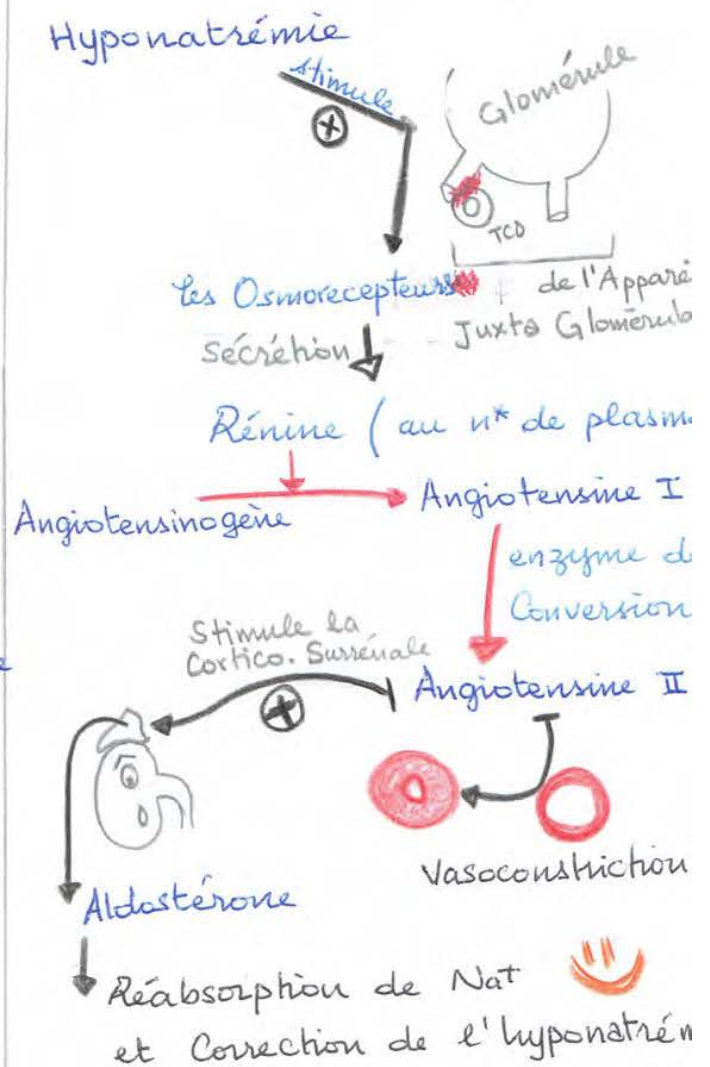 Hyponatrémie
Stimule
+
Glomérule
TCD
les Osmorecepteurs de l'Apparé
Juxta Glomérula
Sécrétion
Rénine ( au n* de plasm
Angiotensinogène
Angiotensine I
enzyme d
Conversion
Stimule la
Cortico. Surrénale
+
Angiotensine II
e
Vasoconstriction
Aldostérone
Réabsorption de Na+
et Correction de l'hyponatrém